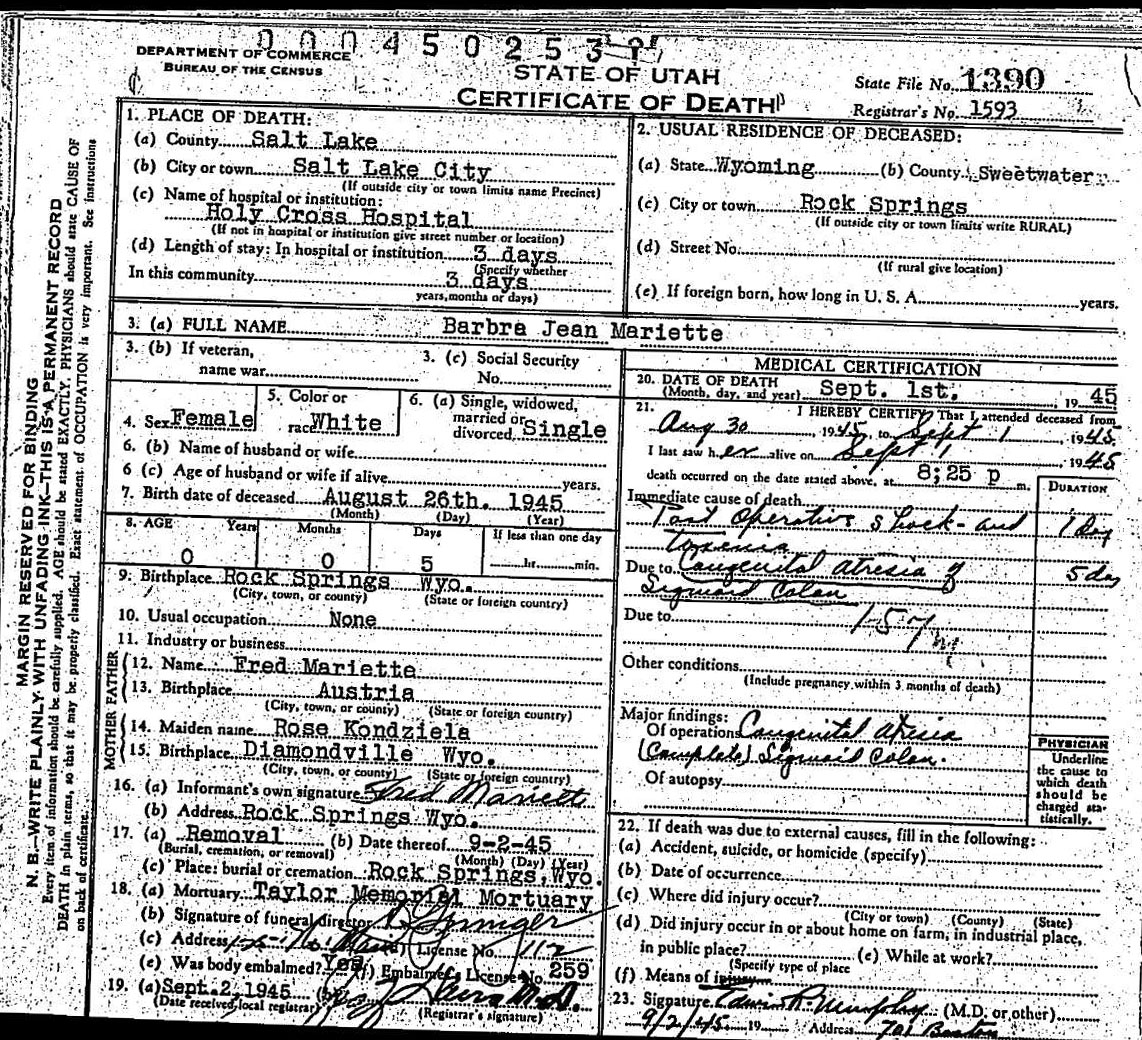 00045025381
DEPARTMENT OF COMMERCE
BUREAU OF THE CENSUS
STATE OF UTAH
CERTIFICATE OF DEATH
State File No. 1390
Registrar's No. 1593
MARGIN RESERVED FOR BINDING
N. B.—WRITE PLAINLY, WITH UNFADING INK—THIS IS A PERMANENT RECORD
Every item of information should be carefully supplied. AGE should be stated EXACTLY. PHYSICIANS should state CAUSE OF
DEATH in plain terms, so that it may be properly classified. Exact statement of OCCUPATION is very important. See instructions
on back of certificate.
1. PLACE OF DEATH:
(a) County Salt Lake
(b) City or town Salt Lake City
(If outside city or town limits name Precinct)
(c) Name of hospital or institution:
Holy Cross Hospital
(If not in hospital or institution give street number or location)
(d) Length of stay: In hospital or institution 3 days
(Specify whether
In this community 3 days
years, months or days)
2. USUAL RESIDENCE OF DECEASED:
(a) State Wyoming (b) County Sweetwater
(c) City or town Rock Springs
(If outside city or town limits write RURAL)
(d) Street No.
(If rural give location)
(e) If foreign born, how long in U. S. A. years.
3. (a) FULL NAME Barbra Jean Mariette
3. (b) If veteran,
name war
3. (c) Social Security
No.
4. Sex Female
5. Color or
race White
6. (a) Single, widowed,
married or
divorced Single
6. (b) Name of husband or wife
6 (c) Age of husband or wife if alive years.
7. Birth date of deceased August 26th. 1945
(Month) (Day) (Year)
8. AGE Years Months Days If less than one day
0 0 5 hr. min.
9. Birthplace Rock Springs Wyo.
(City, town, or county) (State or foreign country)
10. Usual occupation None
11. Industry or business
FATHER
12. Name Fred Mariette
13. Birthplace Austria
(City, town, or county) (State or foreign country)
MOTHER
14. Maiden name Rose Kondziela
15. Birthplace Diamondville Wyo.
(City, town, or county) (State or foreign country)
16. (a) Informant's own signature Fred Mariette
(b) Address Rock Springs Wyo.
17. (a) Removal (b) Date thereof 9-2-45
(Burial, cremation, or removal) (Month) (Day) (Year)
(c) Place: burial or cremation Rock Springs, Wyo.
18. (a) Mortuary Taylor Memorial Mortuary
(b) Signature of funeral director
(c) Address License No. 112
(e) Was body embalmed? Yes (f) Embalmer's License No. 259
19. (a) Sept. 2, 1945 (b) M.D.
(Date received local registrar) (Registrar's signature)
MEDICAL CERTIFICATION
20. DATE OF DEATH
(Month, day, and year) Sept. 1st. 19 45
21. I HEREBY CERTIFY, That I attended deceased from
Aug 30 1945, to Sept 1 1945
I last saw her alive on Sept 1 1945
death occurred on the date stated above, at 8;25 p m.
DURATION
Immediate cause of death
Post Operative shock - and 1 Day
toxemia
Due to Congenital atresia of 5 day
Sigmoid Colon
Due to 157
Other conditions
(Include pregnancy within 3 months of death)
Major findings:
Of operations Congenital Atresia
(Complete) Sigmoid Colon.
Of autopsy
PHYSICIAN
Underline
the cause to
which death
should be
charged sta-
tistically.
22. If death was due to external causes, fill in the following:
(a) Accident, suicide, or homicide (specify)
(b) Date of occurrence
(c) Where did injury occur?
(City or town) (County) (State)
(d) Did injury occur in or about home on farm, in industrial place,
in public place? (e) While at work?
(Specify type of place
(f) Means of injury
23. Signature (M.D. or other)
9/2/45 19 Address 701 Boston